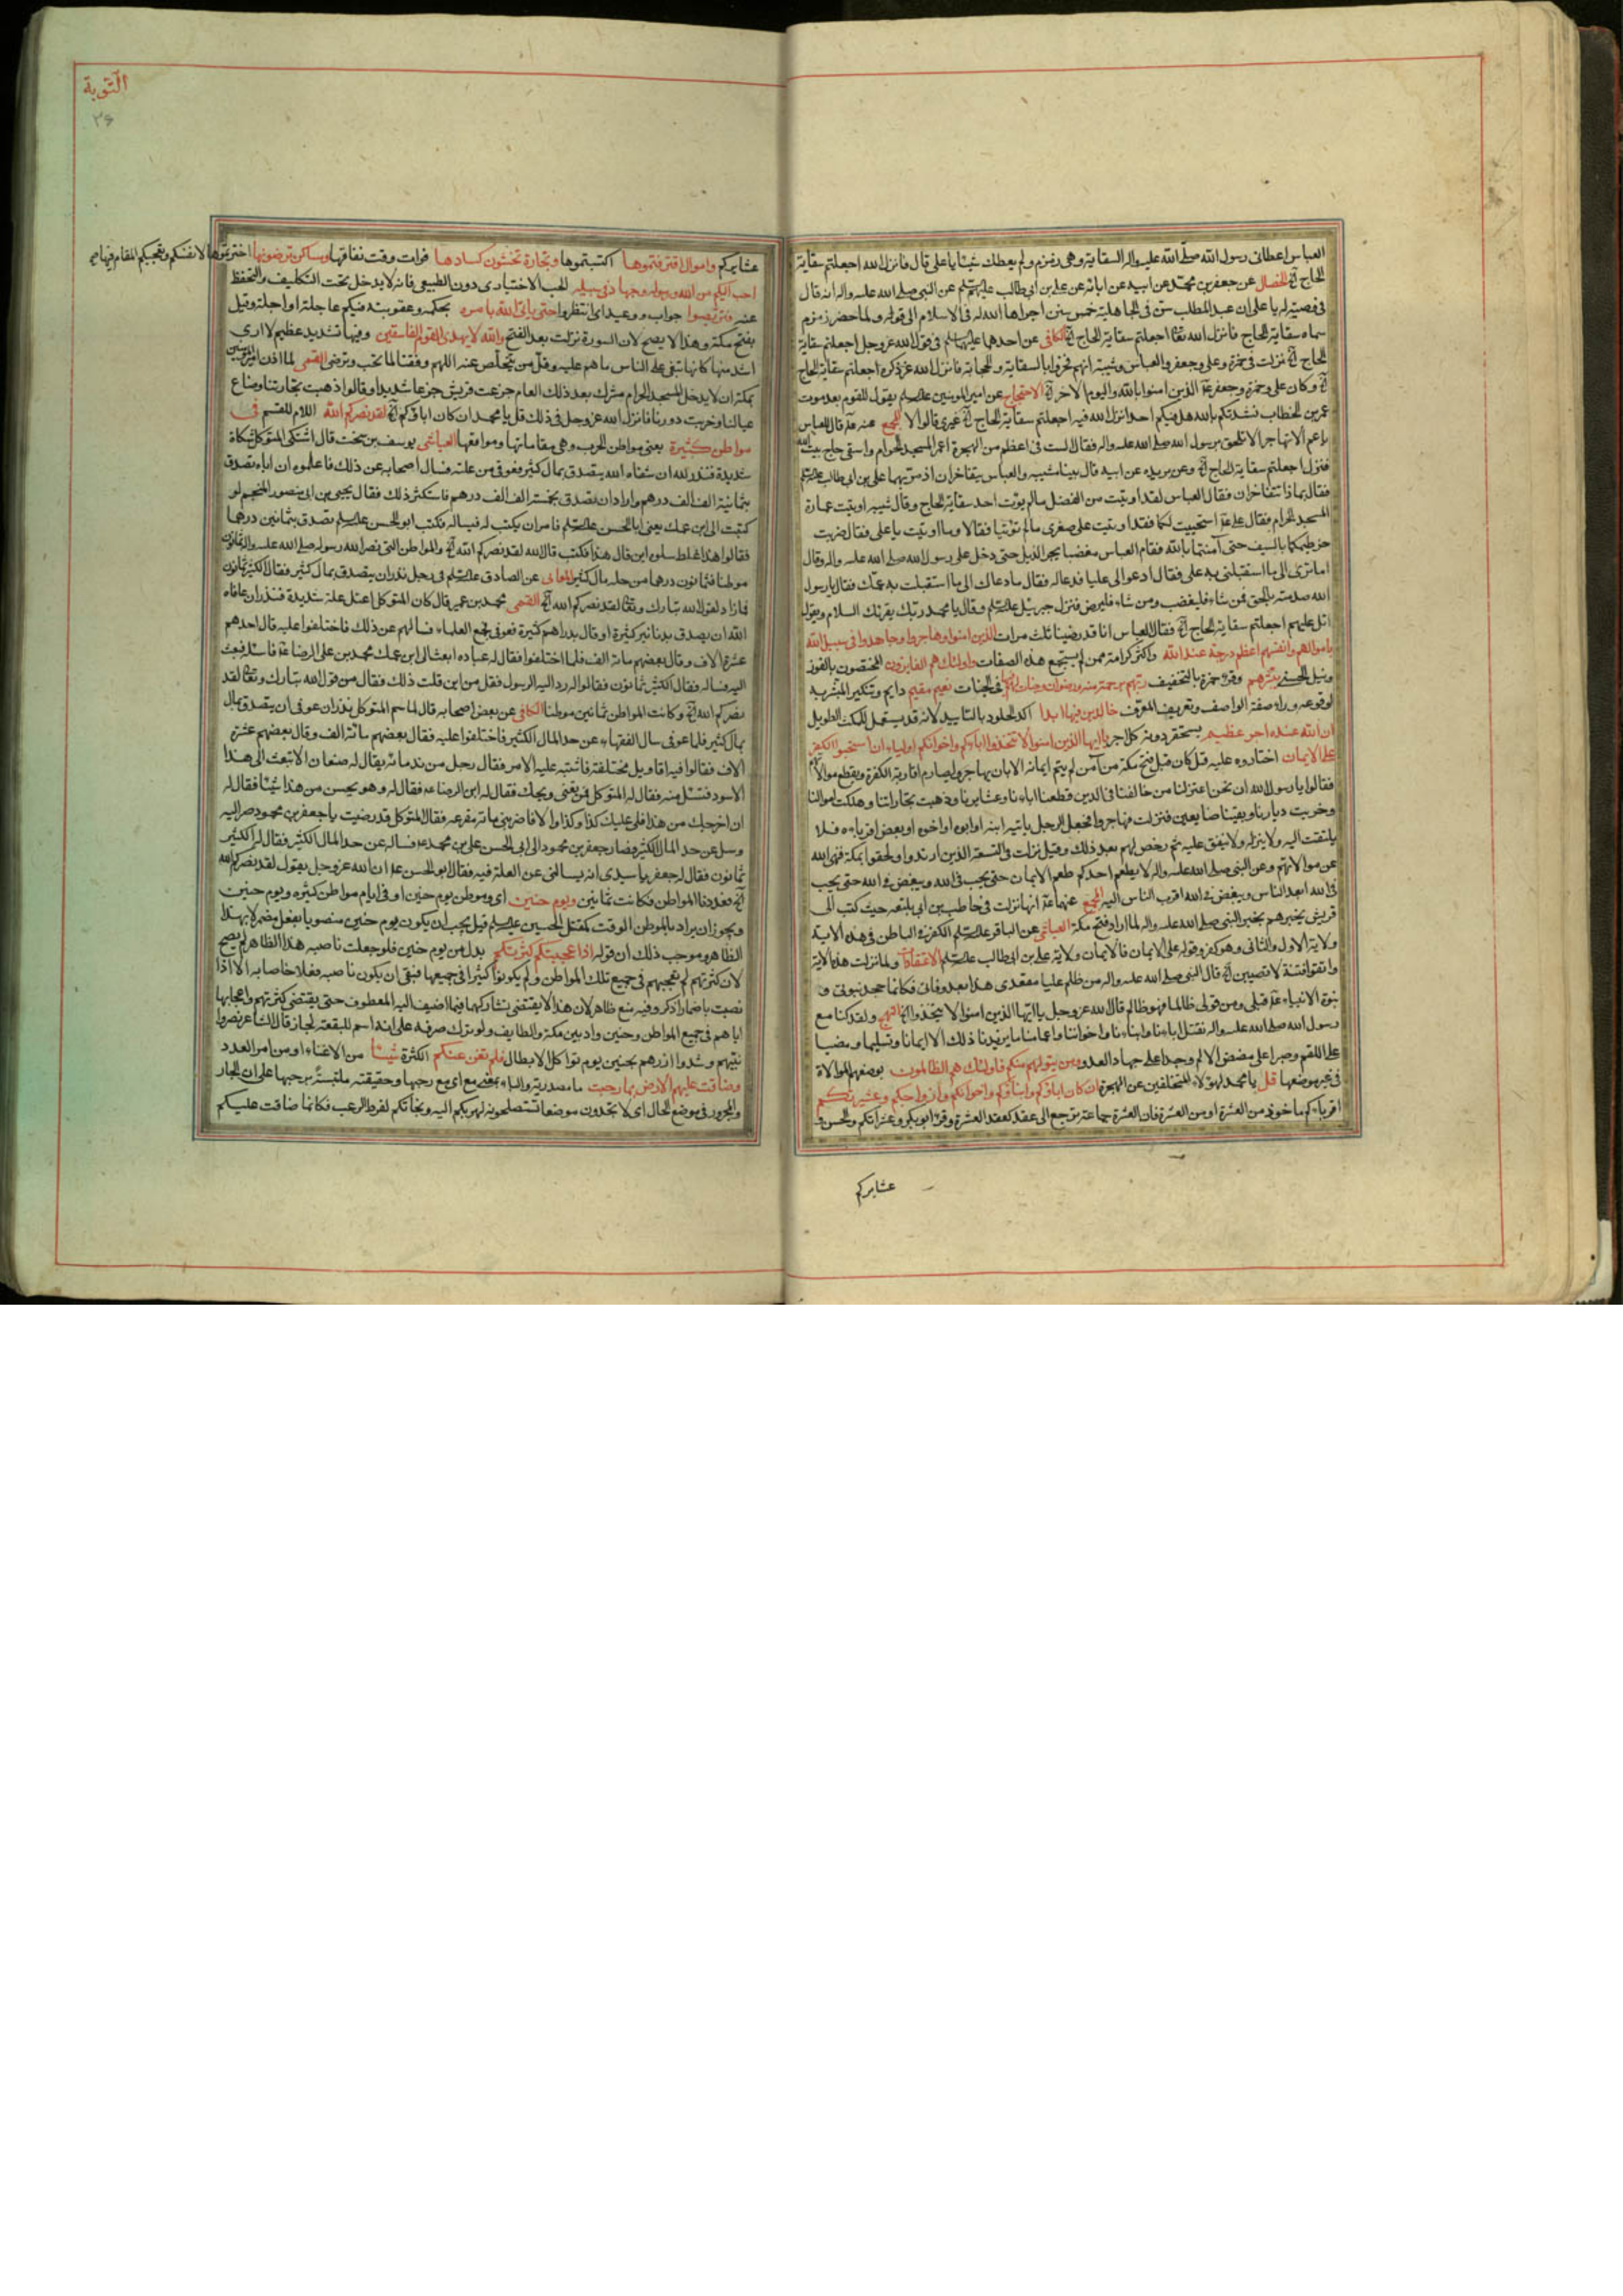 العباس اعطانى رسول الله صلى الله عليه واله السقاية وهى زمزم ولم يعطك شيئا يا على قال فانزل الله اجعلتم سقاية
الحاج الخ الخصال عن جعفر بن محمد عن ابيه عن ابائه عن على بن ابى طالب عليهم عن النبى صلى الله عليه واله انه قال
فى وصيته له يا على ان عبد المطلب سن فى الجاهلية خمس سنن اجراها الله له فى الاسلام الى قوله ولما حضر زمزم
سماه سقاية الحاج فانزل الله تعا اجعلتم سقاية الحاج الخ الكافى عن احدهما عليهما فى قول الله عز وجل اجعلتم سقاية
الحاج الخ نزلت فى حمزة وعلى وجعفر والعباس وشيبة انهم فخروا بالسقاية والحجابة فانزل الله عز ذكره اجعلتم سقاية الحاج
الخ وكان على وحمزة وجعفر الذين امنوا بالله واليوم الاخر الخ الاحتجاج عن امير المومنين يقول للقوم بعد موت
عمر بن الخطاب نشدتكم بالله هل فيكم احد انزل الله فيه اجعلتم سقاية الحاج الخ غيرى قالوا لا المجمع عنه قال للعباس
يا عم الا تهاجر الا تلحق برسول الله صلى الله عليه واله فقال الست فى اعظم من الهجرة اعمر المسجد الحرام واسقى حاج بيت الله
فنزل اجعلتم سقاية الحاج الخ وعن بريده عن ابيه قال بينا شيبه والعباس يتفاخران اذ مر بهما على بن ابى طالب
فقال بماذا تتفاخران فقال العباس لقد اوتيت من الفضل ما لم يوت احد سقاية الحاج وقال شيبه اوتيت عمارة
المسجد الحرام فقال على استحييت لكما فقد اوتيت على صغرى ما لم توتيا فقالا وما اوتيت يا على فقال ضربت
خرطيمكما بالسيف حتى آمنتما بالله فقام العباس مغضبا يجر الذيل حتى دخل على رسول الله صلى الله عليه واله وقال
اما ترى الى ما استقبلنى به على فقال ادعوا لى عليا فدعاله فقال ما دعاك الى ما استقبلت به عمك فقال يا رسول
الله صدمته بالحق فمن شاء فليغضب ومن شاء فليرض فنزل جبرئيل وقال يا محمد ربك يقرئك السلام ويقول
اتل عليهم اجعلتم سقاية الحاج الخ فقال العباس انا قد رضينا ثلث مرات الذين امنوا وهاجروا وجاهدوا فى سبيل الله
باموالهم وانفسهم اعظم درجة عند الله واكثر كرامة ممن لم يستجمع هذه الصفات واولئك هم الفائزون المختصون بالفوز
ونيل الحسنى يبشرهم وقرء حمزة بالتخفيف ربهم برحمة منه ورضوان وجنات لهم فيها فى الجنات نعيم مقيم دايم وتنكير المبشر به
لوقوعه وراء صفة الواصف وتعريف المعرف خالدين فيها ابدا اكد الخلود بالتاييد لانه قد يستعمل للمكث الطويل
ان الله عنده اجر عظيم يستحقر دونه كل اجر يا ايها الذين امنوا لا تتخذوا اباءكم واخوانكم اولياء ان استحبوا الكفر
على الايمان اختاروه عليه قيل كان قبل فتح مكة من آمن لم يتم ايمانه الا بان يهاجر ويصارم اقاربه الكفرة ويقطع موالاتهم
فقالوا يا رسول الله ان نحن اعتزلنا من خالفنا فى الدين قطعنا اباءنا وعشايرنا وذهبت تجاراتنا وهلكت اموالنا
وخربت ديارنا وبقينا ضايعين فنزلت فهاجروا فجعل الرجل ياتيه ابنه او ابوه او اخوه او بعض اقرباءه فلا
يلتفت اليه ولا ينزله ولا ينفق عليه ثم رخص لهم بعد ذلك وقيل نزلت فى التسعة الذين ارتدوا ولحقوا بمكة فنهى الله
عن موالاتهم وعن النبى صلى الله عليه واله لا يطعم احدكم طعم الايمان حتى يحب فى الله ويبغض فى الله حتى يحب
فى الله ابعد الناس ويبغض فى الله اقرب الناس اليه المجمع عنهما انها نزلت فى حاطب بن ابى بلتعه حيث كتب الى
قريش يخبرهم بخبر النبى صلى الله عليه واله لما اراد فتح مكة العياشى عن الباقر الكفر فى الباطن فى هذه الاية
ولاية الاول والثانى وهو كفر وقوله على الايمان فالايمان ولاية على بن ابى طالب الاعتقادات ولما نزلت هذه الاية
واتقوا فتنة لا تصيبن الخ قال النبى صلى الله عليه واله من ظلم عليا مقعدى هذا بعد وفاتى فكانما جحد نبوتى و
نبوة الانبياء قبلى ومن تولى ظالما فهو ظالم قال الله عز وجل يا ايها الذين امنوا لا تتخذوا الخ النهج ولقد كنا مع
رسول الله صلى الله عليه واله نقتل اباءنا وابناءنا واخواننا واعمامنا ما يزيدنا ذلك الا ايمانا وتسليما ومضيا
على اللقم وصبرا على مضض الالم وجدا على جهاد العدو ومن يتولهم منكم فاولئك هم الظالمون بوضعهم الموالاة
فى غير موضعها قل يا محمد لهؤلاء المتخلفين عن الهجرة ان كان اباؤكم وابناؤكم واخوانكم وازواجكم وعشيرتكم
اقرباءكم ماخوذ من العشرة او من العشرة فان العشرة جماعة ترجع الى عقد كعقد العشرة وقرء ابو بكر وعشيراتكم والحسن و
عشايركم
التّوبة
٢٦
عشايركم واموال اقترفتموها اكتسبتموها وتجارة تخشون كسادها فوات وقت نفاقها ومساكن ترضونها اخترتموها لانفسكم ويعجبكم المقام فيها
احب اليكم من الله ورسوله وجهاد فى سبيله الحب الاختيارى دون الطبيعى فانه لا يدخل تحت التكليف والتحفظ
عنه فتربصوا جواب ووعيد اى انتظروا حتى ياتى الله بامره بحكمه وعقوبته فيكم عاجلة او اجلة وقيل
بفتح مكة وهذا لا يصح لان السورة نزلت بعد الفتح والله لا يهدى القوم الفاسقين وفيها تشديد عظيم لا ارى
اشد منها كانها تنعى على الناس ما هم عليه وقل من يتخلص عنه اللهم وفقنا لما تحب وترضى القمى لما اذن امير المومنين
بمكة ان لا يدخل المسجد الحرام مشرك بعد ذلك العام جزعت قريش جزعا شديدا وقالوا ذهبت تجارتنا وضاع
عيالنا وخربت دورنا فانزل الله عز وجل فى ذلك قل يا محمد ان كان اباؤكم الخ لقد نصركم الله اللام للقسم فى
مواطن كثيرة يعنى مواطن الحرب وهى مقاماتها ومواقفها العياشى يوسف بن سخت قال اشتكى المتوكل شكاة
شديدة فنذر لله ان شفاه الله يتصدق بمال كثير فعوفى من علته فسال اصحابه عن ذلك فاعلموه ان اباه تصدق
بثمانية الف الف درهم واراد ان يتصدق بخمسة الف الف درهم فاستكثر ذلك فقال يحيى بن ابى منصور المنجم لو
كتبت الى ابن عمك يعنى ابا الحسن فامر ان يكتب له فيساله فكتب ابو الحسن تصدق بثمانين درهما
فقالوا هذا غلط سلوه اين قال هذا فكتب قال الله لقد نصركم الله الخ والمواطن التى نصر الله رسوله صلى الله عليه واله ثمانون
موطنا فثمانون درهما من حله مال كثير المعانى عن الصادق فى رجل نذر ان يتصدق بمال كثير فقال الكثير ثمانون
فما زاد لقول الله تبارك وتعا لقد نصركم الله الخ القمى محمد بن عمير قال كان المتوكل اعتل علة شديدة فنذر ان عافاه
الله ان يصدق بدنانير كثيرة او قال بدراهم كثيرة فعوفى فجمع العلماء فسالهم عن ذلك فاختلفوا عليه قال احدهم
عشرة الاف وقال بعضهم مائة الف فلما اختلفوا فقال له عباده ابعث الى ابن عمك محمد بن على الرضا فاسئله فبعث
اليه فساله فقال الكثير ثمانون فقالوا له رد اليه الرسول فقل من اين قلت ذلك فقال من قول الله تبارك وتعا لقد
نصركم الله الخ وكانت المواطن ثمانين موطنا الكافى عن بعض اصحابه قال لما سم المتوكل نذر ان عوفى ان يتصدق بمال
بمال كثير فلما عوفى سال الفقهاء عن حد المال الكثير فاختلفوا عليه فقال بعضهم مائة الف وقال بعضهم عشرة
الاف فقالوا فيه اقاويل مختلفة فاشتبه عليه الامر فقال رجل من ندمائه يقال له صنعان الا تبعث الى هذا
الاسود فتسئل منه فقال له المتوكل فمن تعنى ويحك فقال له ابن الرضا فقال له وهو يحسن من هذا شيئا فقال له
ان اخرجك من هذا فلى عليك كذا وكذا والا فاضربنى مائة مقرعه فقال المتوكل قد رضيت يا جعفر بن محمود صر اليه
وسل عن حد المال الكثير فصار جعفر بن محمود الى ابى الحسن على بن محمد فساله عن حد المال الكثير فقال له الكثير
ثمانون فقال له جعفر يا سيدى انه يسالنى عن العلة فيه فقال ابو الحسن ان الله عز وجل يقول لقد نصركم الله
الخ فعددنا المواطن فكانت ثمانين ويوم حنين اى وموطن يوم حنين او فى ايام مواطن كثيره ويوم حنين
ويجوز ان يراد بالموطن الوقت كمقتل الحسين قيل يجب ان يكون يوم حنين منصوبا بفعل مضمر لا بهذا
الظاهر وموجب ذلك ان قوله اذا عجبتكم كثرتكم بدل من يوم حنين فلو جعلت ناصبه هذا الظاهر لم يصح
لان كثرتهم لم تعجبهم فى جميع تلك المواطن ولم يكونوا كثيرا فى جميعها فبقى ان يكون ناصبه فعلا خاصا به الا اذا
نصبت باضمار اذكر وفيه منع ظاهر لان هذا لا يقتضى تشاركهما فيما اضيف اليه المعطوف حتى يقتضى كثرتهم واعجابها
اياهم فى جميع المواطن وحنين واد بين مكة والطايف ولو ترك صرفه على انه اسم للبقعة لجاز قال الشاعر نصروا
نبيهم وشدوا ازرهم بحنين يوم تواكل الابطال فلم تغن عنكم الكثرة شيئا من الاغناء او من امر العدد
وضاقت عليهم الارض بما رحبت ما مصدرية والباء بمعنى مع اى مع رحبها وحقيقته ملتبسة برحبها على ان الجار
والمجرور فى موضع الحال اى لا تجدون موضعا تستصلحونه لهربكم اليه ونجاتكم لفرط الرعب فكانما ضاقت عليكم